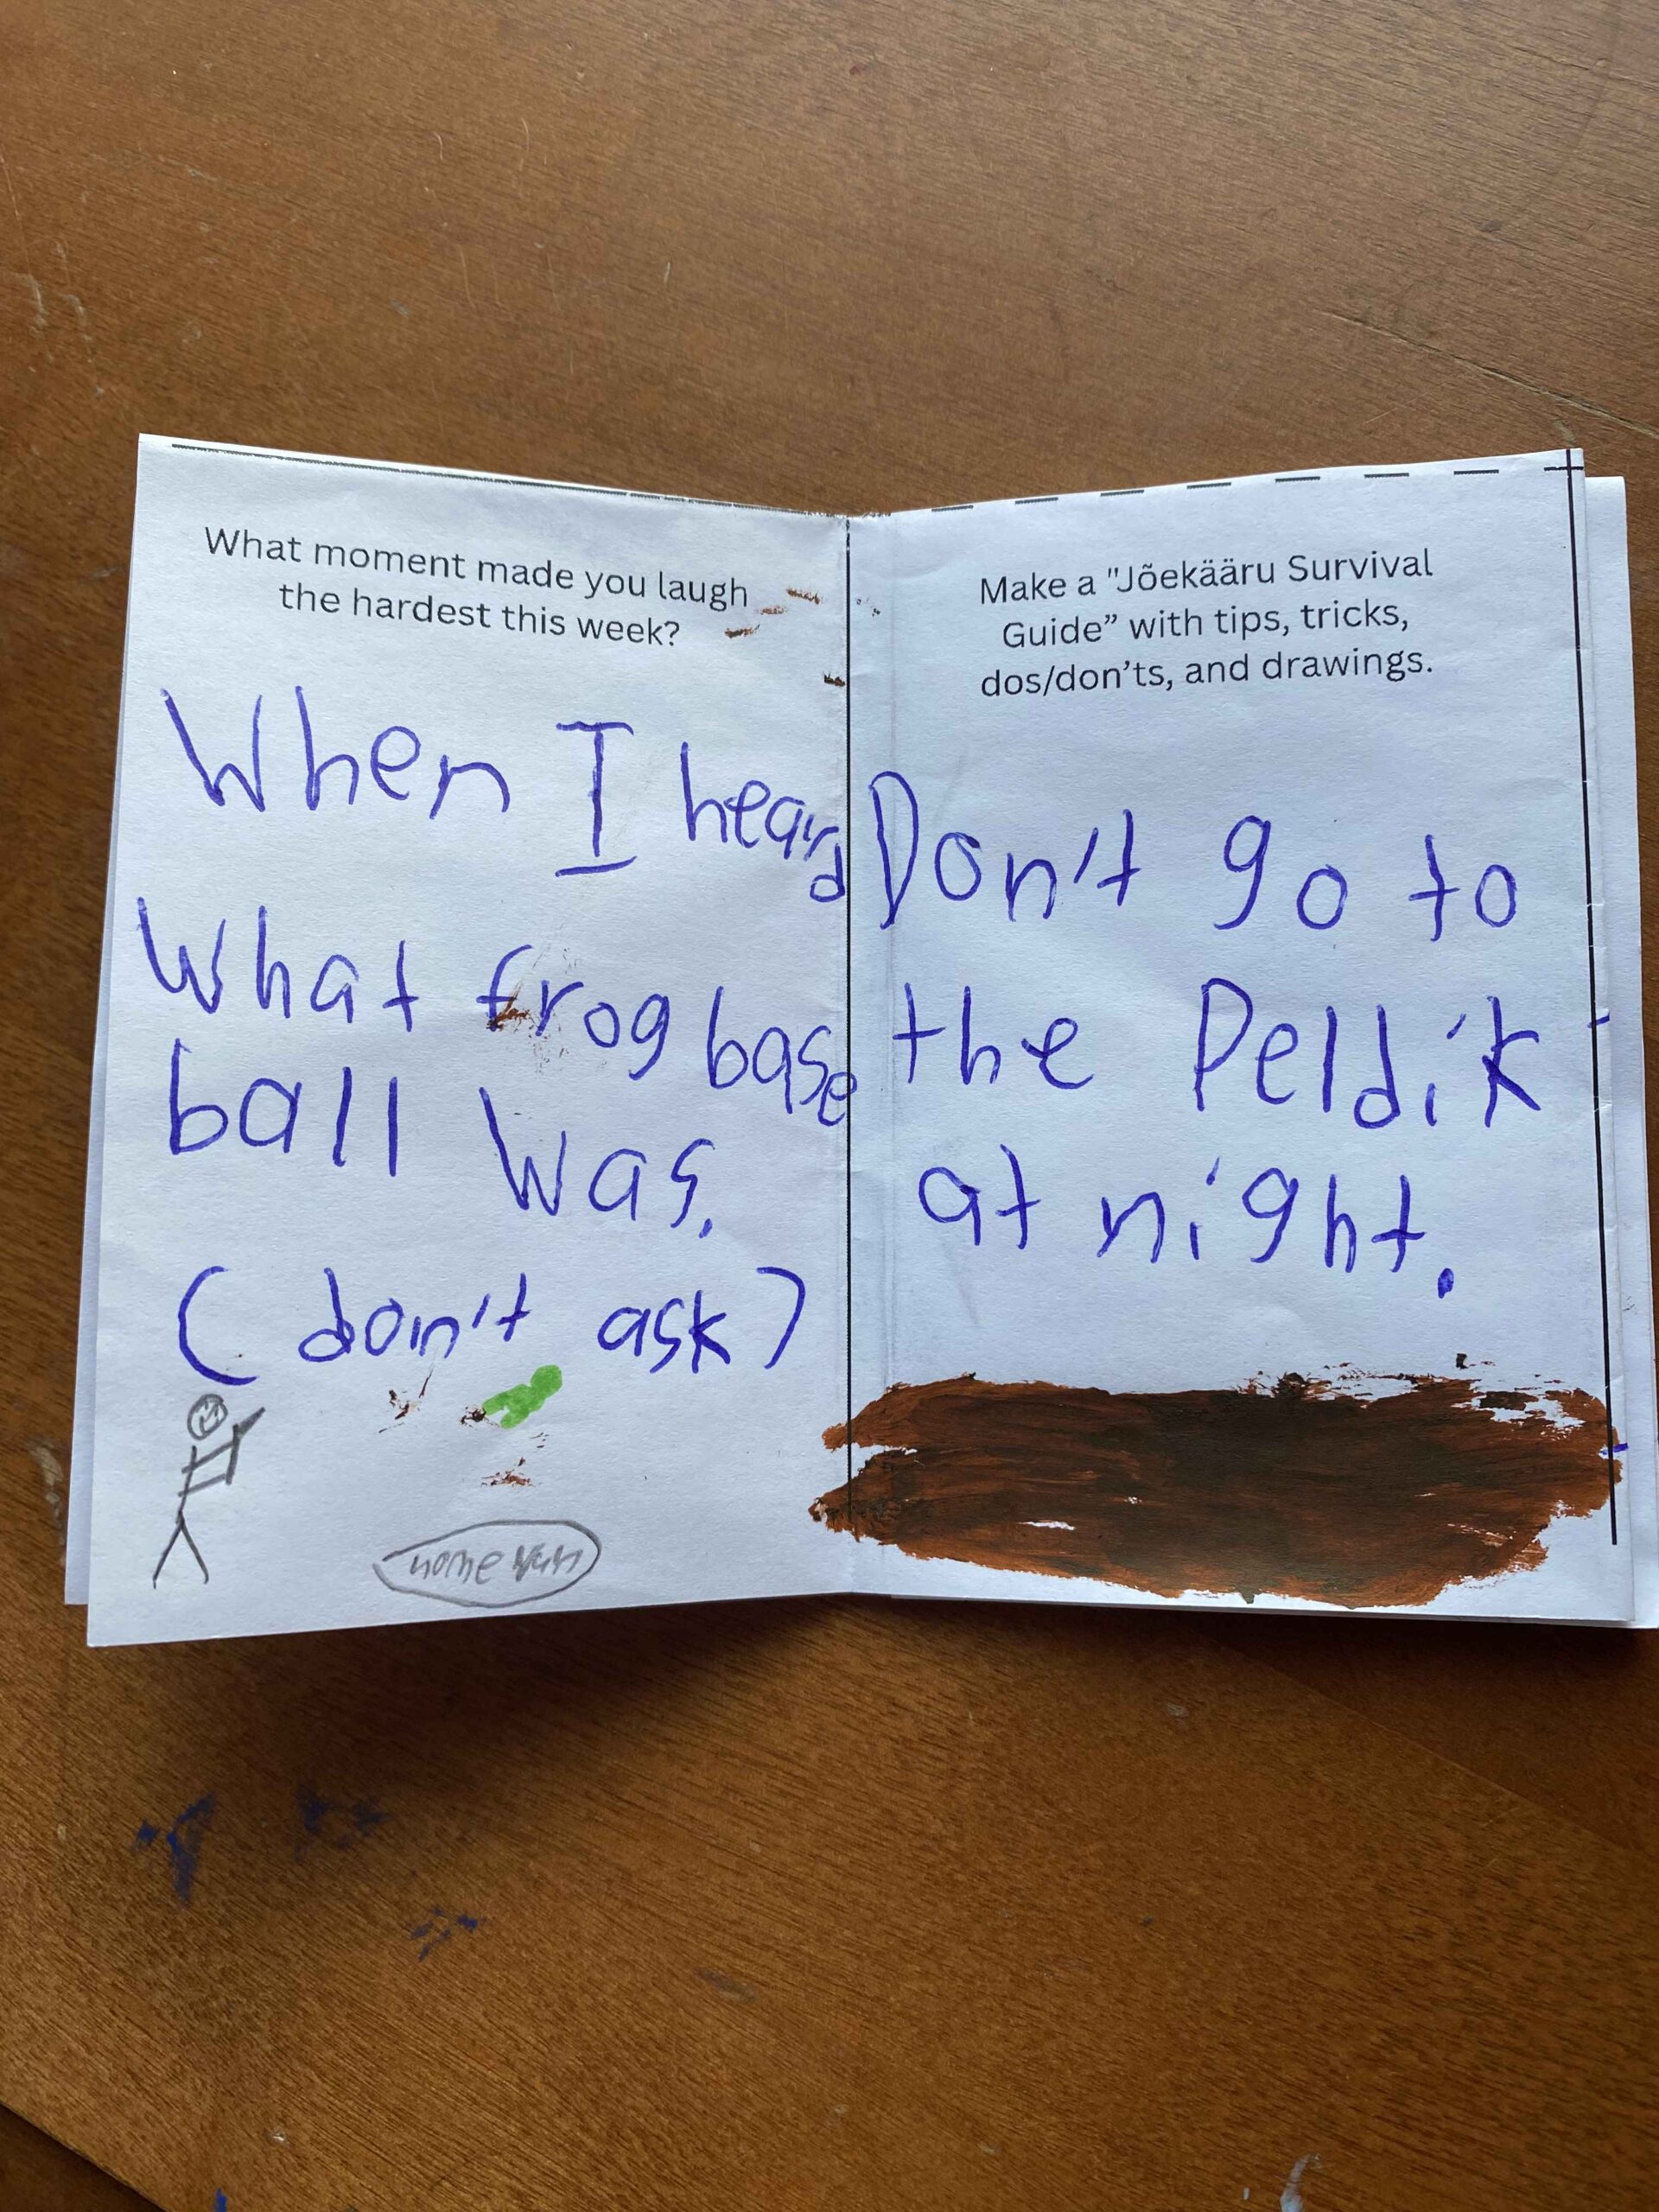 What moment made you laugh
the hardest this week?
When I heard
What frog base
ball was.
(don't ask)
home run
Make a "Jõekääru Survival
Guide” with tips, tricks,
dos/don’ts, and drawings.
Don't go to
the Peldik
at night.